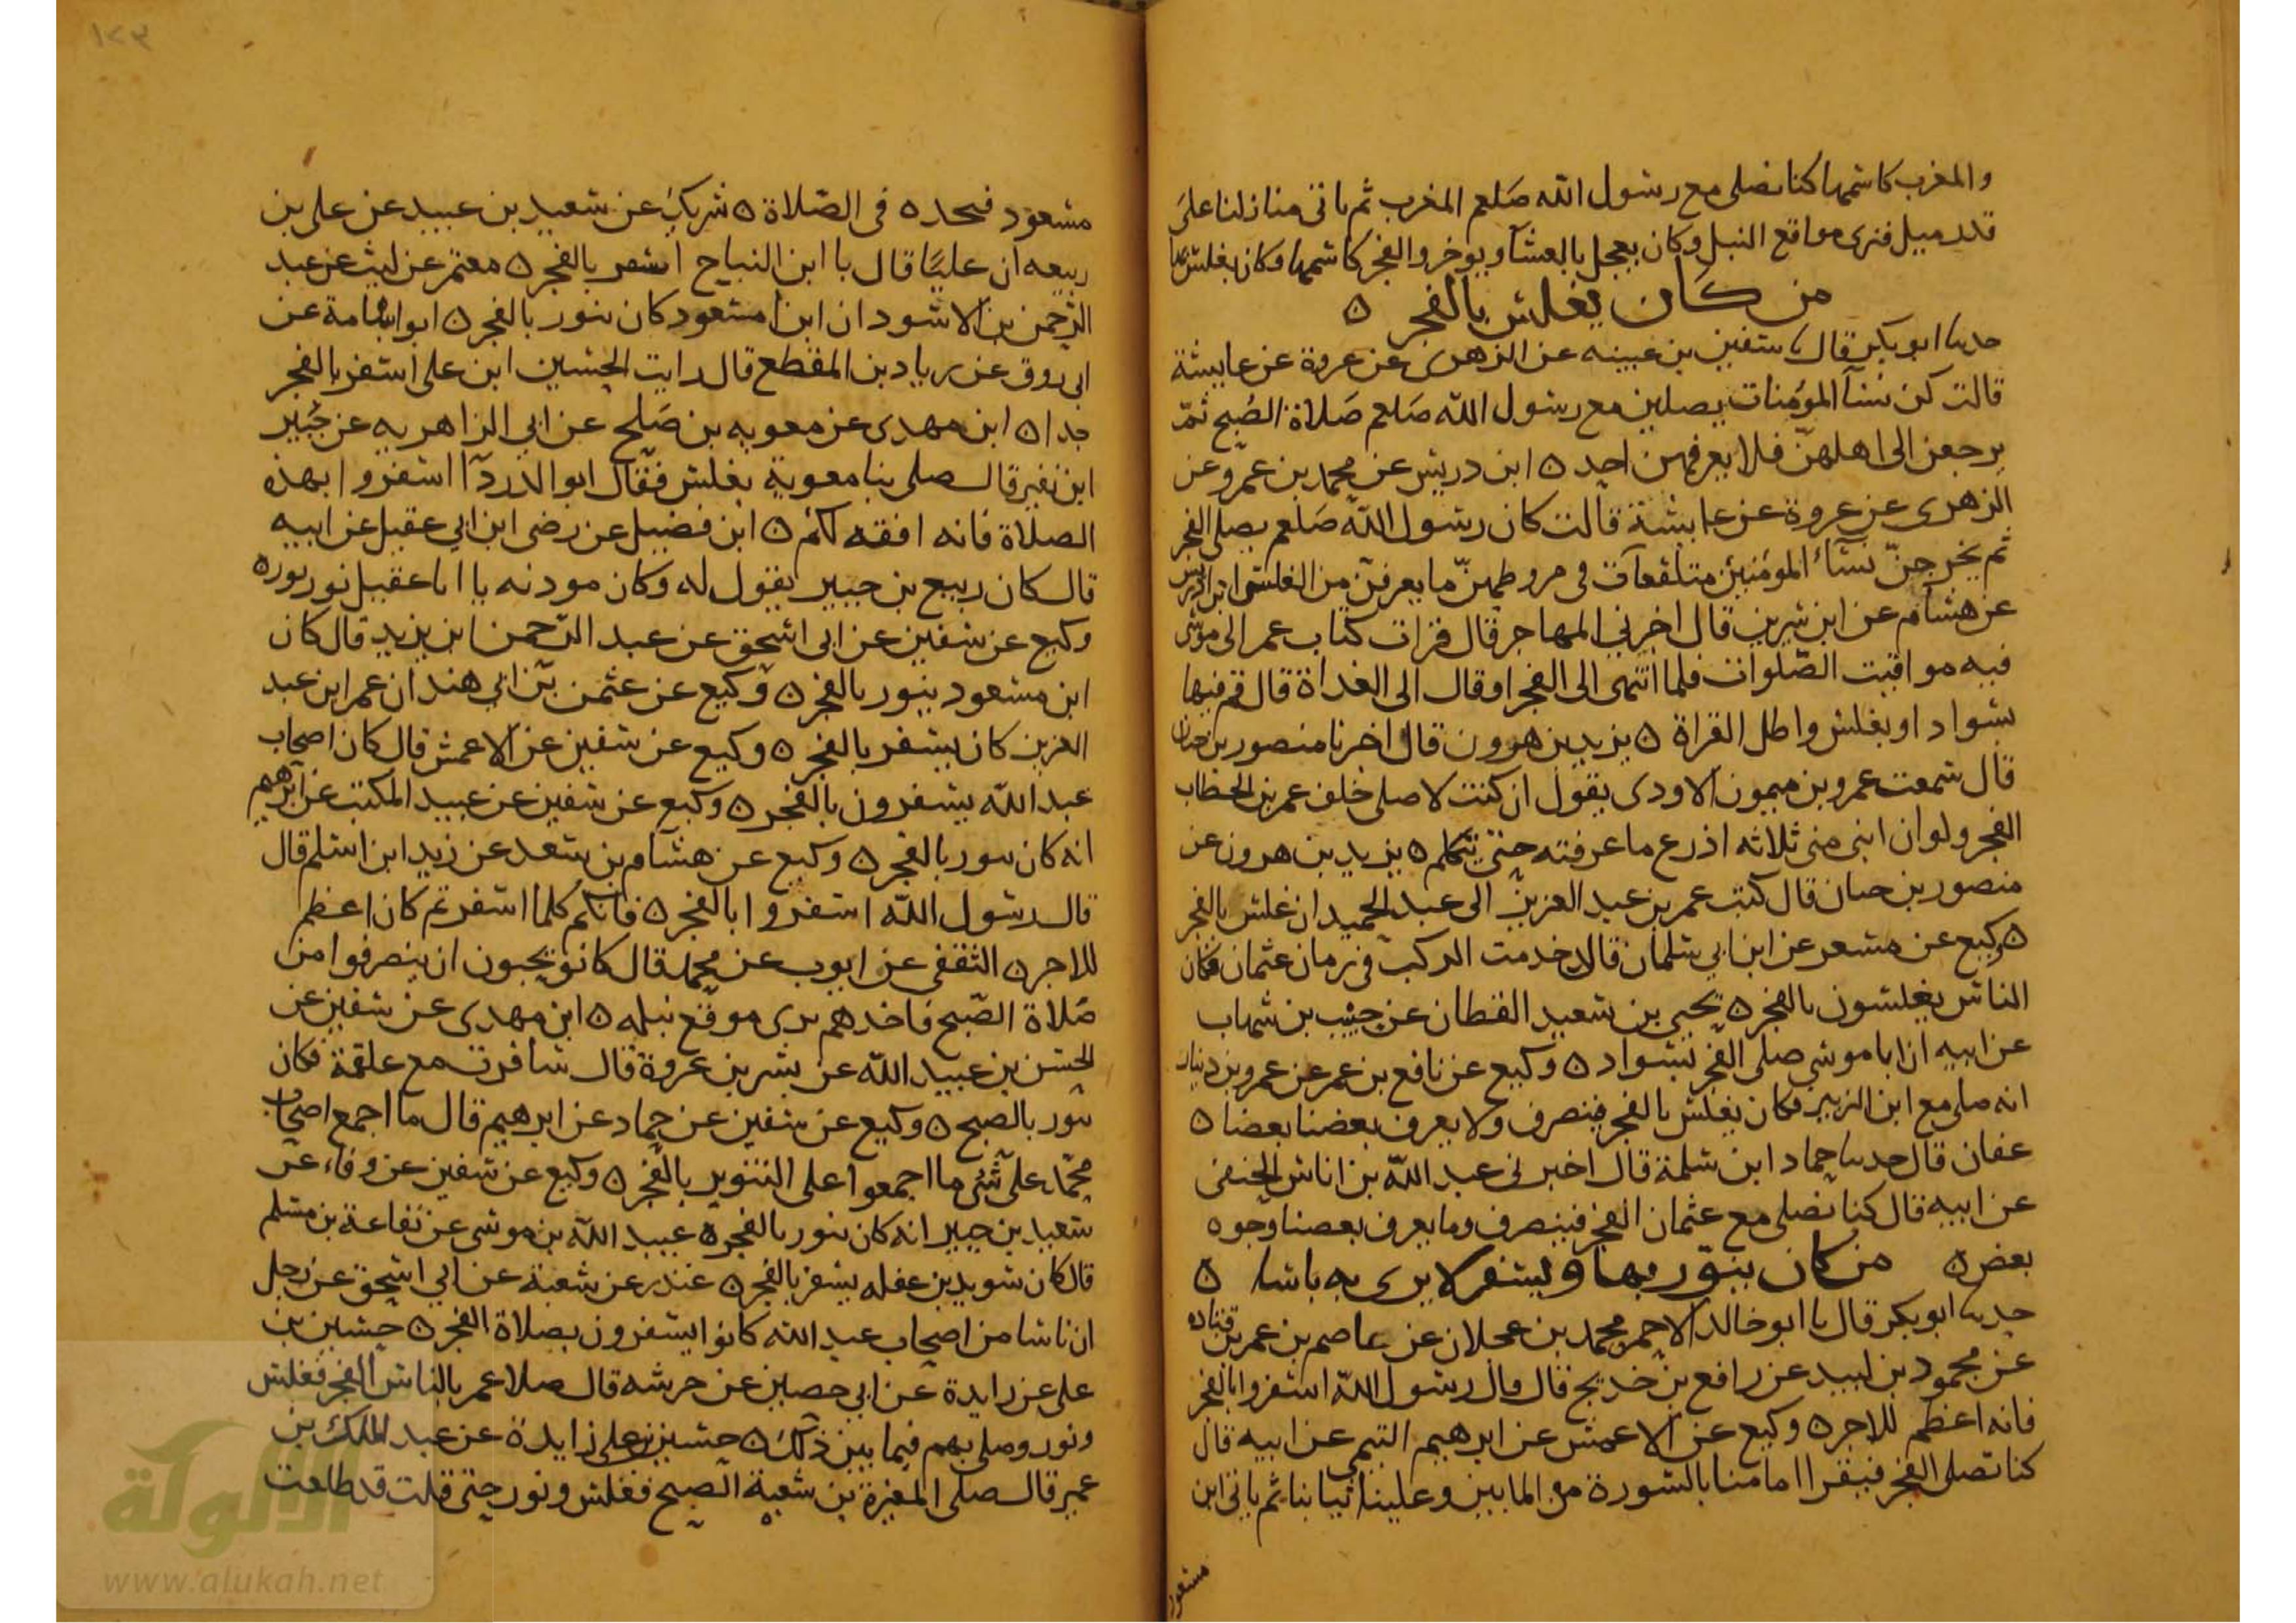 ١٢٣
والمغرب كاسمها كنا نصلى مع رسول الله صلعم المغرب ثم ناتى منازلنا على
قدر ميل فنرى مواقع النبل وكان يعجل بالعشآ ويوخر والفجر كاسمها وكان يغلس بها
من كان يغلس بالفجر ٥
حدسا ابو بكر قال سا سفين بن عيينه عن الزهرى عن عروة عن عايشة
قالت كن نسآ المؤمنات يصلين مع رسول الله صلعم صلاة الصبح ثم
يرجعن الى اهلهن فلا يعرفهن احد ٥ ابن دريس عن محمد بن عمرو عن
الزهرى عن عروة عن عايشة قالت كان رسول الله صلعم يصلى الفجر
ثم يخرجن نسآء المؤمنين متلفعات فى مروطهن ما يعرفن من الغلس ابن ادريس
عن هشام عن ابن سيرين قال اخبرنى المهاجر قال قرات كتاب عمر الى موسى
فيه مواقيت الصلوات فلما انتهى الى الفجر او قال الى الغداة قال قم فيها
بسواد او بغلس واطل القراة ٥ يزيد بن هرون قال اخبرنا منصور بن حيان
قال سمعت عمرو بن ميمون الاودى يقول ان كنت لاصلى خلف عمر بن الخطاب
الفجر ولو ان ابنى منى ثلاثه اذرع ما عرفته حتى يتكلم ٥ يزيد بن هرون عن
منصور بن حيان قال كتب عمر بن عبد العزيز الى عبد الحميد ان غلس بالفجر
٥ وكيع عن مسعر عن ابن ابى سلمان قال خدمت الركب فى زمان عثمان فكان
الناس يغلسون بالفجر ٥ يحيى بن سعيد القطان عن حبيب بن شهاب
عن ابيه ان ابا موسى صلى الفجر بسواد ٥ وكيع عن نافع بن عمر عن عمرو بن دينار
انه صلى مع ابن الزبير فكان يغلس بالفجر فينصرف ولا يعرف بعضنا بعضا ٥
عفان قال حدسا حماد ابن سلمة قال اخبرنى عبد الله بن اناس الحنفى
عن ابيه قال كنا نصلى مع عثمان الفجر فينصرف وما يعرف بعضنا وجوه
بعض ٥ من كان ينور بها ويسفر لا يرى به باسا ٥
حدسا ابو بكر قال سا ابو خالد الاحمر محمد بن عجلان عن عاصم بن عمر بن قتاده
عن محمود بن لبيد عن رافع بن خديج قال قال رسول الله اسفروا بالفجر
فانه اعظم للاجر ٥ وكيع عن الاعمش عن ابرهيم التيمى عن ابيه قال
كنا نصلى الفجر فيقرا امامنا بالسورة من المايين وعلينا ثيابنا ثم ياتى ابن
مسعود
مسعود فيجده فى الصلاة ٥ شريك عن سعيد بن عبيد عن على بن
ربيعه ان عليا قال يا ابن النباح اسفر بالفجر ٥ معتمر عن ليث عن عبد
الرحمن بن الاسود ان ابن مسعود كان ينور بالفجر ٥ ابو اسامة عن
ابى روق عن زياد بن المقطع قال رايت الحسين ابن على اسفر بالفجر
جدا ٥ ابن مهدى عن معويه بن صلح عن ابى الزاهريه عن جبير
ابن نفير قال صلى بنا معوية بغلس فقال ابو الدردآ اسفروا بهذه
الصلاة فانه افقه لكم ٥ ابن فضيل عن رضى ابن ابى عقيل عن ابيه
قال كان ربيع بن جبير يقول له وكان موذنه يا ابا عقيل نور نوره
وكيع عن سفين عن ابى اسحق عن عبد الرحمن ابن يزيد قال كان
ابن مسعود ينور بالفجر ٥ وكيع عن عثمن بن ابى هند ان عمر ابن عبد
العزيز كان يسفر بالفجر ٥ وكيع عن سفين عن الاعمش قال كان اصحاب
عبد الله يسفرون بالفجر ٥ وكيع عن سفين عن عبيد المكتب عن ابرهيم
انه كان ينور بالفجر ٥ وكيع عن هشام بن سعد عن زيد ابن اسلم قال
قال رسول الله اسفروا بالفجر ٥ فانكم كلما اسفرتم كان اعظم
للاجر ٥ الثقفى عن ايوب عن محمد قال كانو يحبون ان ينصرفوا من
صلاة الصبح فاحدهم يرى موقع نبله ٥ ابن مهدى عن سفين عن
الحسن بن عبيد الله عن بشر بن عروة قال سافرت مع علقمة فكان
ينور بالصبح ٥ وكيع عن سفين عن حماد عن ابرهيم قال ما اجمع اصحاب
محمد على شى ما اجمعوا على التنوير بالفجر ٥ وكيع عن سفين عن وفاء عن
سعيد بن جبير انه كان ينور بالفجر ٥ عبيد الله بن موسى عن نفاعة بن مسلم
قال كان سويد بن غفله يسفر بالفجر ٥ غندر عن شعبة عن ابى اسحق عن رجل
ان ناسا من اصحاب عبد الله كانوا يسفرون بصلاة الفجر ٥ حسين بن
على عن زايدة عن ابى حصين عن خرشه قال صلا عمر بالناس الفجر فغلس
ونور وصلى بهم فيما بين ذلك ٥ حسين بن على زايدة عن عبد الملك بن
عمير قال صلى المغيرة بن شعبة الصبح فغلس ونور حتى قلت قد طلعت
الألوكة
www.alukah.net